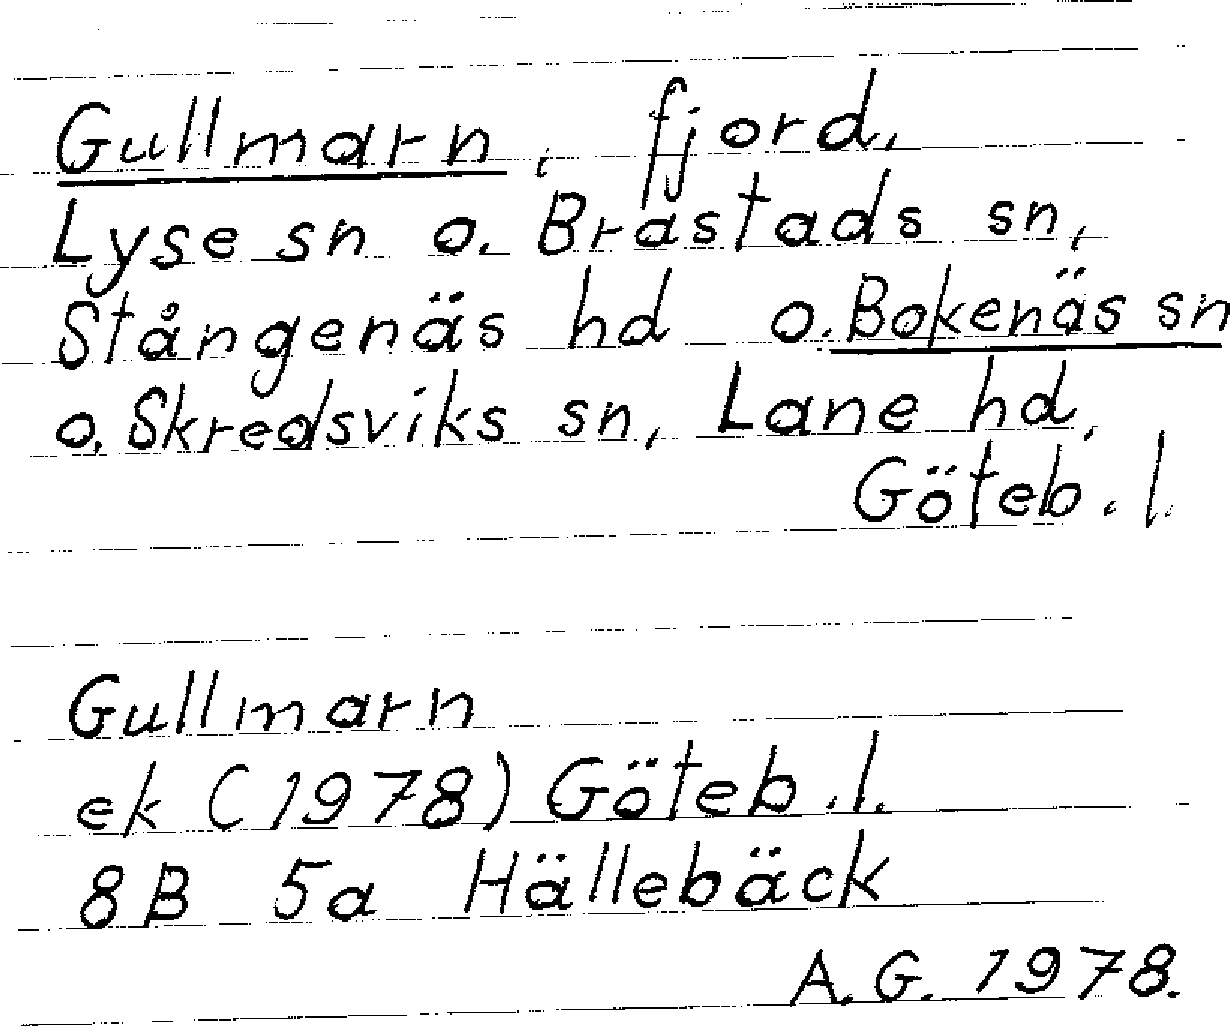 Gullmarn, fjord,
Lyse sn o. Brastads sn,
Stångenäs hd o. Bokenäs sn
o. Skredsviks sn, Lane hd,
Göteb. l.
Gullmarn
ek (1978) Göteb. l.
8B 5a Hällebäck
A. G. 1978.